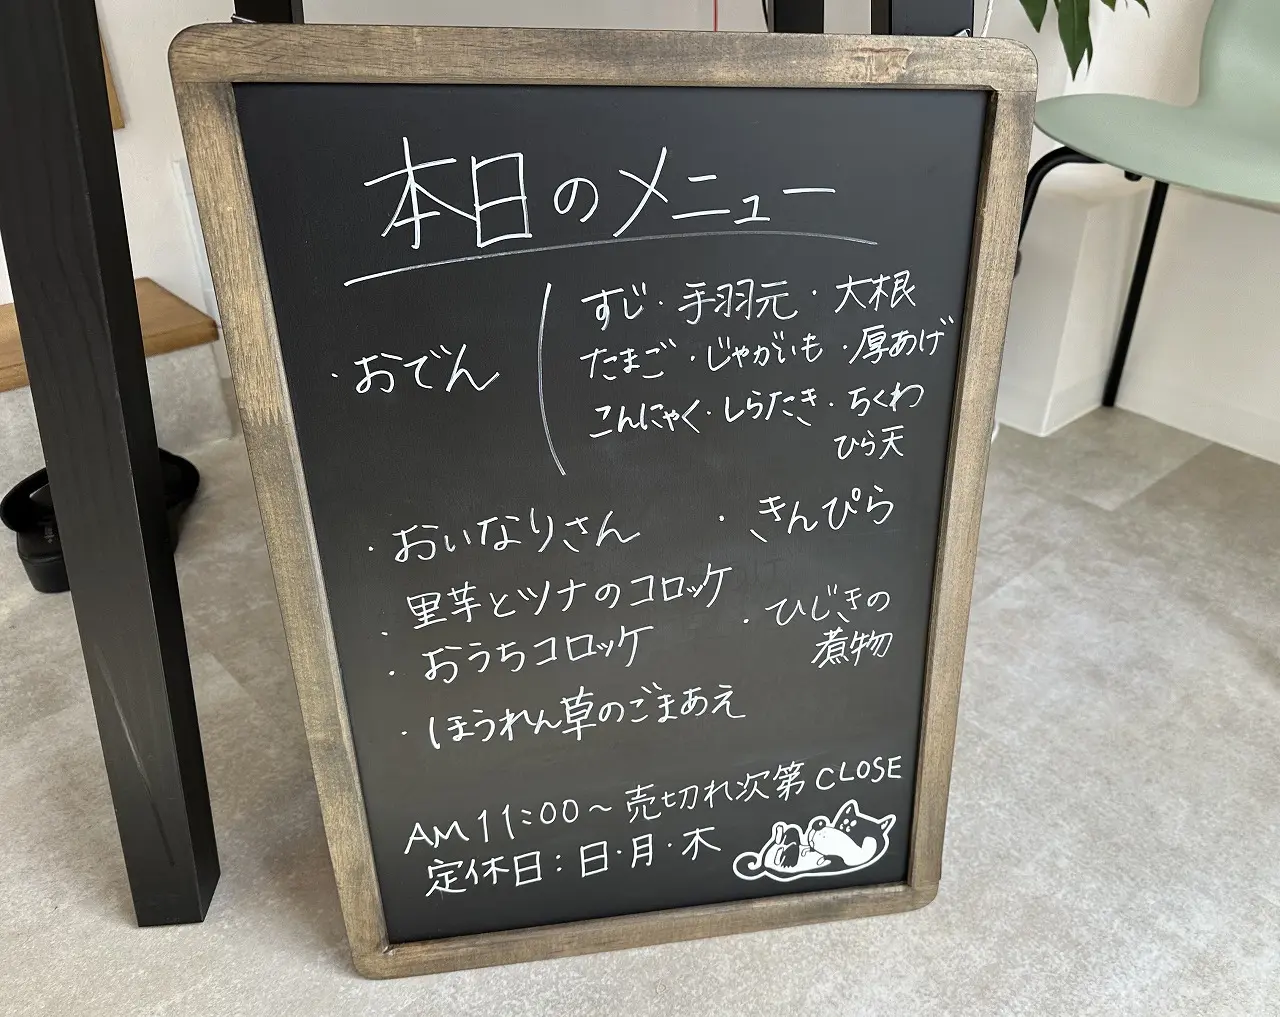 本日のメニュー
・おでん
すじ・手羽元・大根
たまご・じゃがいも・厚あげ
こんにゃく・しらたき・ちくわ
ひら天
・おいなりさん
・きんぴら
・里芋とツナのコロッケ
・おうちコロッケ
・ひじきの
煮物
・ほうれん草のごまあえ
AM 11:00～売切れ次第CLOSE
定休日：日・月・木